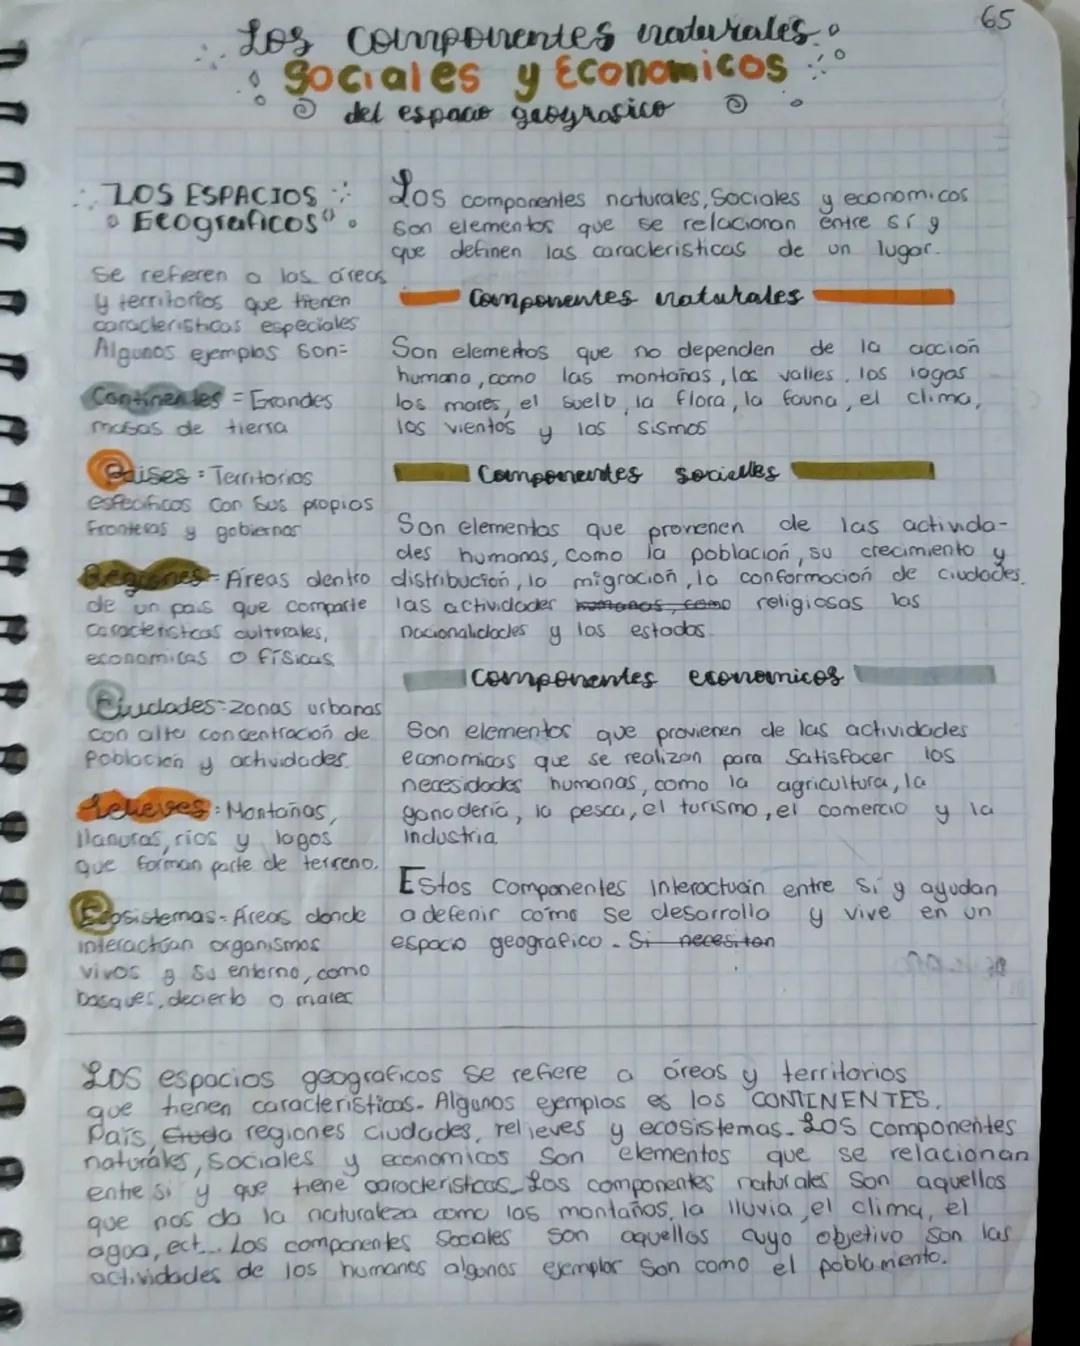 65
Los componentes naturales
Sociales y Economicos
del espacio geografico
LOS ESPACIOS
Geograficos
Se refieren a las áreas
y territorios que tienen
caracteristicas especiales
Algunos ejemplos son=
Continentes = Grandes
masas de tierra
Paises = Territorios
especificos con sus propios
fronteras y gobiernos
Regiones = Áreas dentro
de un pais que comparte
caracteristicas culturales,
economicas o físicas
Ciudades = zonas urbanas
con alta concentración de
Población y actividades.
Relieves: Montañas,
llanuras, ríos y lagos
que forman parte de terreno.
Ecosistemas = Áreas donde
interactúan organismos
vivos y su entorno, como
bosques, decierto o mares
Los componentes naturales, Sociales y economicos
Son elementos que se relacionan entre sí y
que definen las caracteristicas de un lugar.
Componentes naturales
Son elementos que no dependen de la acción
humana, como las montañas, los valles, los lagos
los mares, el suelo, la flora, la fauna, el clima,
los vientos y los sismos
Componentes socielles
Son elementos que provienen de las activida-
des humanas, como la población, su crecimiento y
distribución, la migración, la conformación de ciudades.
las actividades humanas, como religiosas las
nacionalidades y los estados.
Componentes economicos
Son elementos que provienen de las actividades
economicas que se realizan para Satisfacer las
necesidades humanas, como la agricultura, la
ganadería, la pesca, el turismo, el comercio y la
industria.
Estos Componentes interactuán entre Sí y ayudan
a defenir como se desarrolla y vive en un
espacio geografico. Si necesitan
Los espacios geograficos se refiere a áreas y territorios
que tienen caracteristicas. Algunos ejemplos es los CONTINENTES,
País, regiones ciudades, relieves y ecosistemas. Los componentes
naturales, Sociales y economicos Son elementos que se relacionan
entre si y que tiene caracteristicas. Los componentes naturales Son aquellos
que nos da la naturaleza como las montañas, la lluvia, el clima, el
agua, ect... Los componentes Sociales Son aquellos cuyo objetivo son las
actividades de los humanos algunos ejemplos Son como el poblamiento.